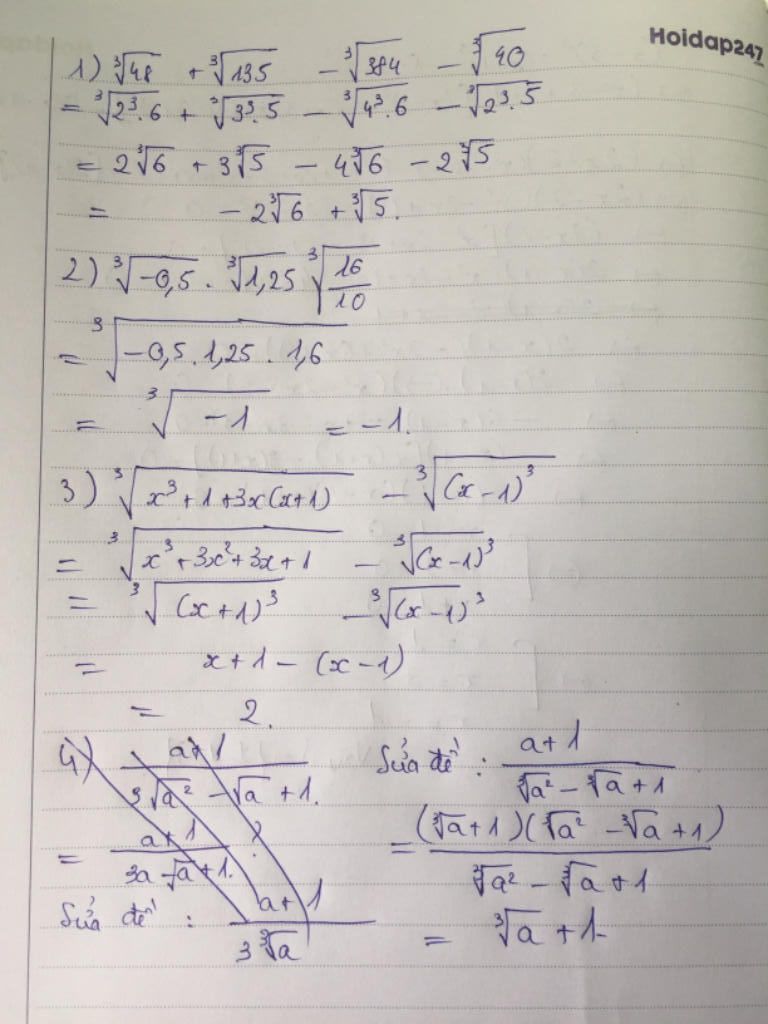 Hoidap247
1) ∛48 + ∛135 - ∛384 - ∛40
= ∛(2³.6) + ∛(3³.5) - ∛(4³.6) - ∛(2³.5)
= 2∛6 + 3∛5 - 4∛6 - 2∛5
= - 2∛6 + ∛5.
2) ∛(-0,5) . ∛(1,25) ∛(16/10)
= ∛(-0,5 . 1,25 . 1,6)
= ∛(-1) = -1.
3) ∛(x³ + 1 + 3x(x+1)) - ∛((x-1)³)
= ∛(x³ + 3x² + 3x + 1) - ∛((x-1)³)
= ∛((x+1)³) - ∛((x-1)³)
= x+1 - (x-1)
= 2.
4) (a+1)/(3√(a²) - √a + 1.)
= (a+1)/(3a - √a + 1.) ?
Sửa đề : (a+1)/(3∛a)
Sửa đề : (a+1)/(∛(a²) - ∛a + 1)
= ((∛a + 1)(∛(a²) - ∛a + 1))/(∛(a²) - ∛a + 1)
= ∛a + 1